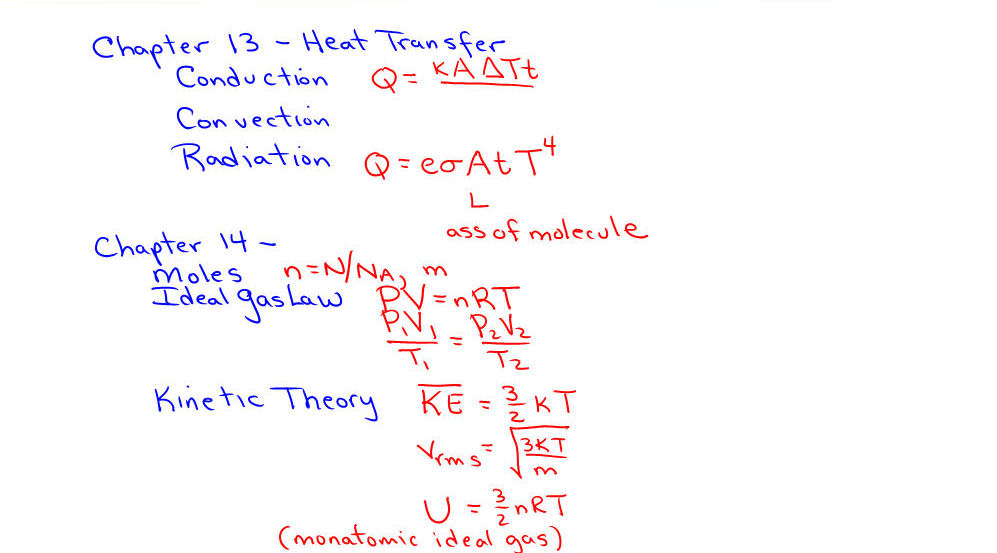 Chapter 13 - Heat Transfer
Conduction Q = kAΔTt
Convection
Radiation Q = eσAtT⁴
L
ass of molecule
Chapter 14 -
Moles n=N/NA, m
Ideal gas Law PV=nRT
P₁V₁/T₁ = P₂V₂/T₂
Kinetic Theory K̅E̅ = 3/2 KT
Vrms = √(3KT/m)
U = 3/2 nRT
(monatomic ideal gas)